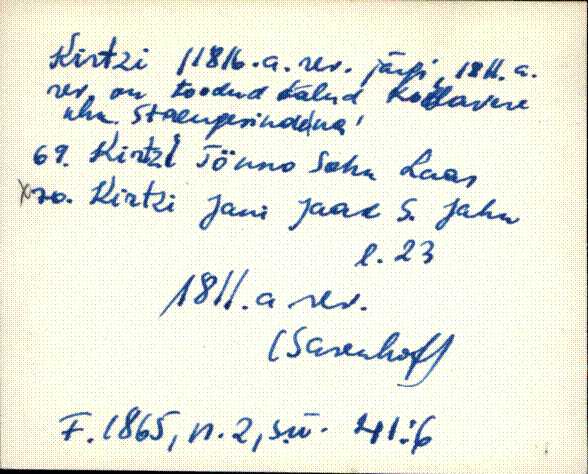 Kirtzi /1816.a. rev. järgi, 1811.a.
rev. on toodud talud Kodavere
uhk.
69. Kirtzi Tönno Sohn Laas
x70. Kirtzi Jani Jaak S. Jahn
l. 23
1811.a rev.
(Sarenhof)
F. 1865, n. 2, s.ü. 41:6